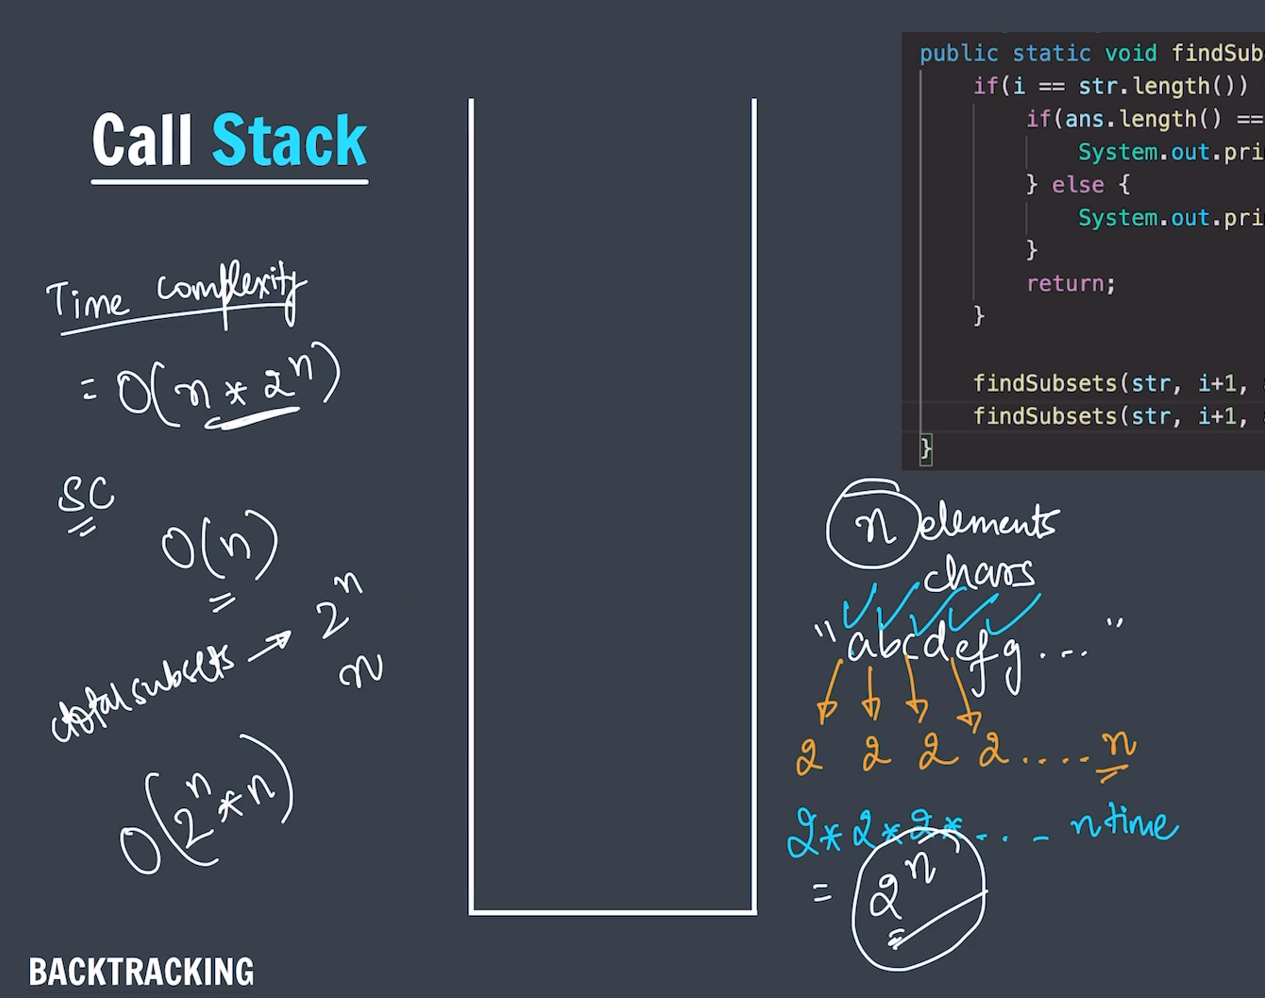 Call Stack
Time complexity
= O(n * 2^n)
SC
O(n)
total subsets → 2^n
n
O(2^n * n)
BACKTRACKING
public static void findSub
if(i == str.length())
if(ans.length() ==
System.out.pri
} else {
System.out.pri
}
return;
}
findSubsets(str, i+1,
findSubsets(str, i+1,
}
n elements
chars
"abcdefg..."
2 2 2 2 .... n
2*2*2*... n time
= 2^n